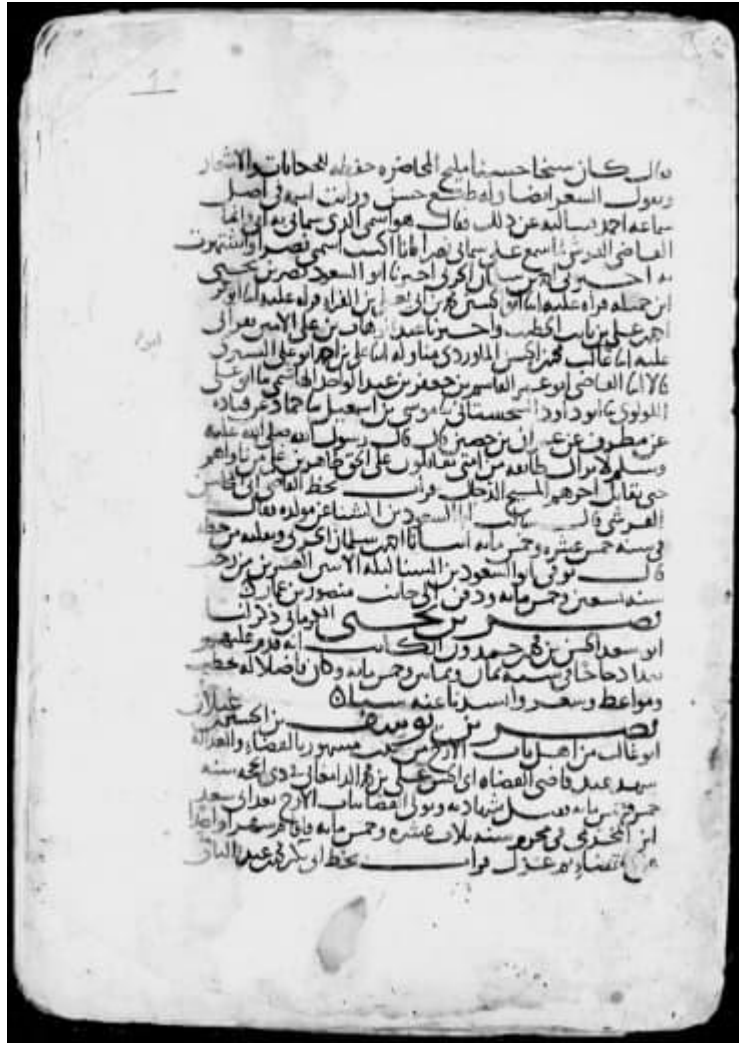 قال كان شيخا حسنا مليح المحاضرة حفظه للحكايات والاشعار
ويقول الشعر ايضا وله طبع حسن ورايت اسمه في اصل
سماعه احمد فسالته عن ذلك فقال هو اسمي الذي سماني به ابي وانما
القاضي اسمع على سماني نصرا فانا اكتب اسمي نصرا واشتهرت
به اخبرني ابو السعود نصر بن يحيى
ابن جميله قراه عليه انا ابو الحسين محمد بن ابي يعلى بن الفرا قراه عليه انا ابو بكر
احمد بن علي بن ثابت الخطيب واخبرنا عبد الله بن علي الامين بقراتي
عليه انا غالب محمد بن الحسن الماوردي مناوله انا علي بن احمد ابو علي التستري
قالا انا القاضي ابو عمر القاسم بن جعفر بن عبد الواحد الهاشمي نا ابو علي
اللولوي نا ابو داود السجستاني نا موسى بن اسمعيل نا حماد عن قتاده
عن مطرف عن عمران بن حصين قال قال رسول الله صلى الله عليه
وسلم لا تزال طايفه من امتي يقاتلون على الحق ظاهرين على من ناواهم
حتى يقاتل اخرهم المسيح الدجال قرات بخط القاضي ابي المحاسن
القرشي قال سالت ابا السعود بن الشنا عن مولده فقال
في سنه خمس عشره وخمس مايه انبانا احمد بن سلمان الحربي ونقلته من خطه
قال توفي ابو السعود بن الشنا ليله الاثنين العشرين من رجب
سنه تسعين وخمس مايه ودفن الى جانب منصور بن عمار
نصر بن يحيى ذكر لنا
ابو سعد الحسن بن محمد بن حمدون الكاتب انه قدم عليهم
بغداد حاجا في سنه ثمان وثمانين وخمس مايه وكان فاضلا له خطب
ومواعظ وشعر وانشدنا عنه شيا
نصر بن يوسف بن الحسين
ابو غالب من اهل باب الازج من بيت مشهور بالقضاء والعداله
شهد عند قاضي القضاه ابي الحسن علي بن محمد الدامغاني في ذي الحجه سنه
خمس مايه فقبل شهادته وتولى القضا بباب الازج بعد ابي سعد
ابن المخرمي في محرم سنه ثلاث عشره وخمس مايه فاقام شهرا واحدا
ثم عزل قرات بخط ابو بكر بن عبد الباقي